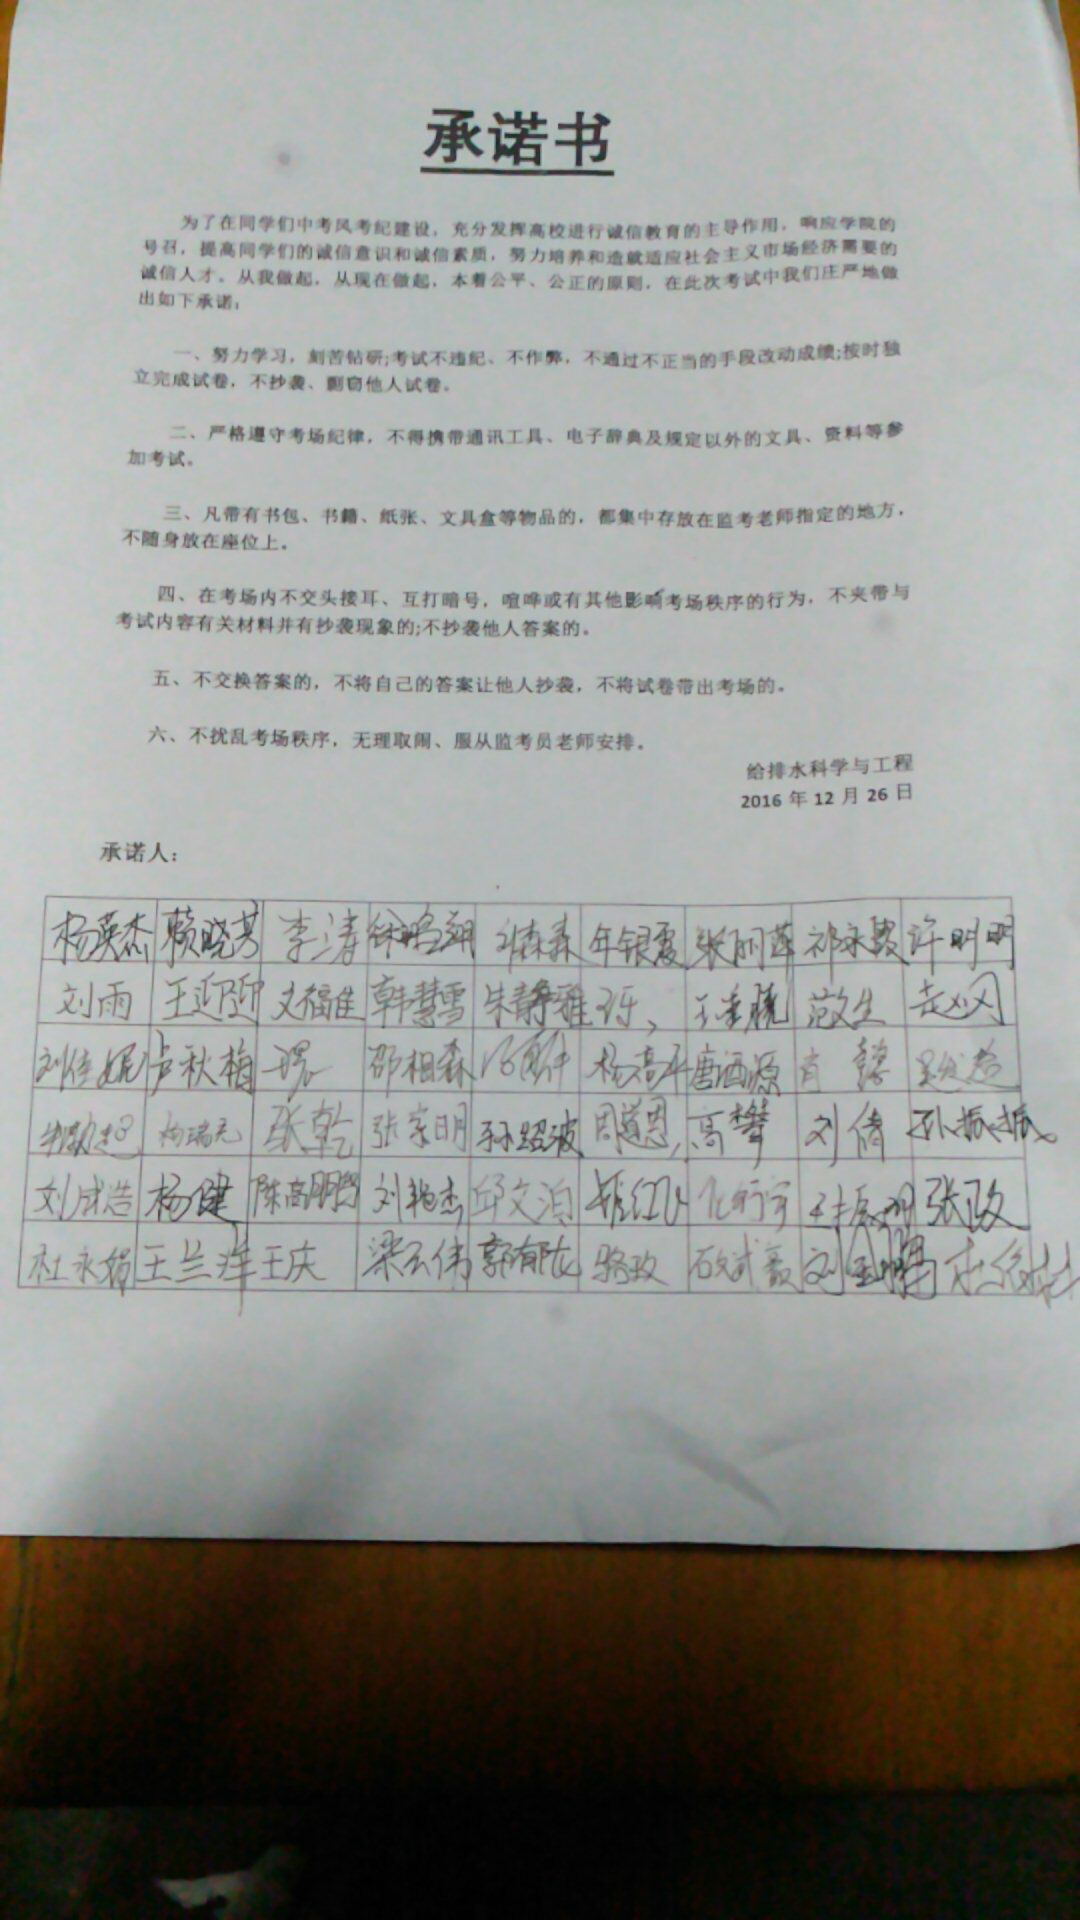 承诺书
为了在同学们中考风考纪建设，充分发挥高校进行诚信教育的主导作用，响应学院的
号召，提高同学们的诚信意识和诚信素质，努力培养和造就适应社会主义市场经济需要的
诚信人才。从我做起，从现在做起，本着公平、公正的原则，在此次考试中我们庄严地做
出如下承诺：
一、努力学习，刻苦钻研;考试不违纪、不作弊，不通过不正当的手段改动成绩;按时独
立完成试卷，不抄袭、剽窃他人试卷。
二、严格遵守考场纪律，不得携带通讯工具、电子辞典及规定以外的文具、资料等参
加考试。
三、凡带有书包、书籍、纸张、文具盒等物品的，都集中存放在监考老师指定的地方，
不随身放在座位上。
四、在考场内不交头接耳、互打暗号，喧哗或有其他影响考场秩序的行为，不夹带与
考试内容有关材料并有抄袭现象的;不抄袭他人答案的。
五、不交换答案的，不将自己的答案让他人抄袭，不将试卷带出考场的。
六、不扰乱考场秩序，无理取闹、服从监考员老师安排。
给排水科学与工程
2016 年 12 月 26 日
承诺人：
杨英杰 赖晓芳 李涛 徐鸣翔 年银霞 张丽萍 祁永毅 许明明
刘雨 王迎迎 韩慧雪 朱静雅
刘佳妮 卢秋梅 邵相森 杨高平 唐洒源
张乾 张家明 孙照波 周道恩 高攀 刘倩 孙振振
刘成浩 杨健 陈高鹏 刘艳杰 邱文泊 张政
杜永娟 王兰洋 王庆 梁云伟 郭有龙 骆玫